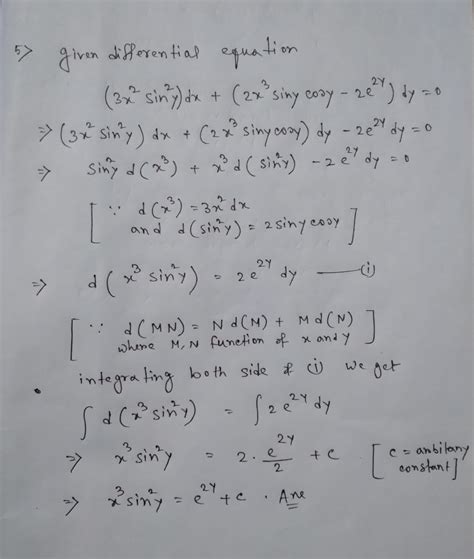 5> given differential equation
(3x² sin²y)dx + (2x³ siny cosy - 2e^{2y}) dy = 0
=> (3x² sin²y) dx + (2x³ siny cosy) dy - 2e^{2y} dy = 0
=> sin²y d(x³) + x³ d(sin²y) - 2e^{2y} dy = 0
[∵ d(x³) = 3x² dx
and d(sin²y) = 2siny cosy]
=> d(x³ sin²y) = 2e^{2y} dy —— (i)
[∵ d(MN) = N d(N) + M d(N)
where M, N function of x and y]
integrating both side & (i) we get
∫ d(x³ sin²y) = ∫ 2e^{2y} dy
=> x³ sin²y = 2. e^{2y}/2 + c [c = arbitrary
constant]
=> x³ sin²y = e^{2y} + c . Ans